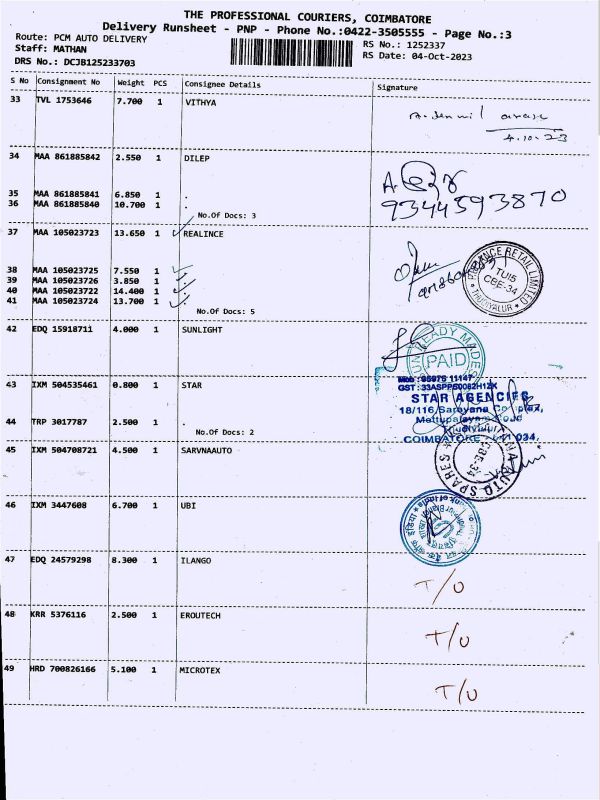 THE PROFESSIONAL COURIERS, COIMBATORE
Delivery Runsheet - PNP - Phone No.:0422-3505555 - Page No.:3
Route: PCM AUTO DELIVERY
RS No.: 1252337
Staff: MATHAN
RS Date: 04-Oct-2023
DRS No.: DCJB125233703
S No Consignment No Weight PCS Consignee Details Signature
33 TVL 1753646 7.700 1 VITHYA
4.10.23
34 MAA 861885842 2.550 1 DILEP
35 MAA 861885841 6.850 1 .
36 MAA 861885840 10.700 1 .
9344593870
No.Of Docs: 3
37 MAA 105023723 13.650 1 REALINCE
RELIANCE RETAIL LIMITED
TUI5
CBE-34
* THUDIYALUR *
38 MAA 105023725 7.550 1 .
39 MAA 105023726 3.850 1 .
40 MAA 105023722 14.400 1 .
41 MAA 105023724 13.700 1 .
No.Of Docs: 5
42 EDQ 15918711 4.000 1 SUNLIGHT
READY MADES
PAID
43 IXM 504535461 0.800 1 STAR
STAR AGENCIES
18/116, Saravana Complex,
COIMBATORE - 641 034.
44 TRP 3017787 2.500 1 .
No.Of Docs: 2
45 IXM 504708721 4.500 1 SARVNAAUTO
AUTO SPARES
CBE-34
46 IXM 3447608 6.700 1 UBI
47 EDQ 24579298 8.300 1 ILANGO
T/U
48 KRR 5376116 2.500 1 EROUTECH
T/U
49 HRD 700826166 5.100 1 MICROTEX
T/U